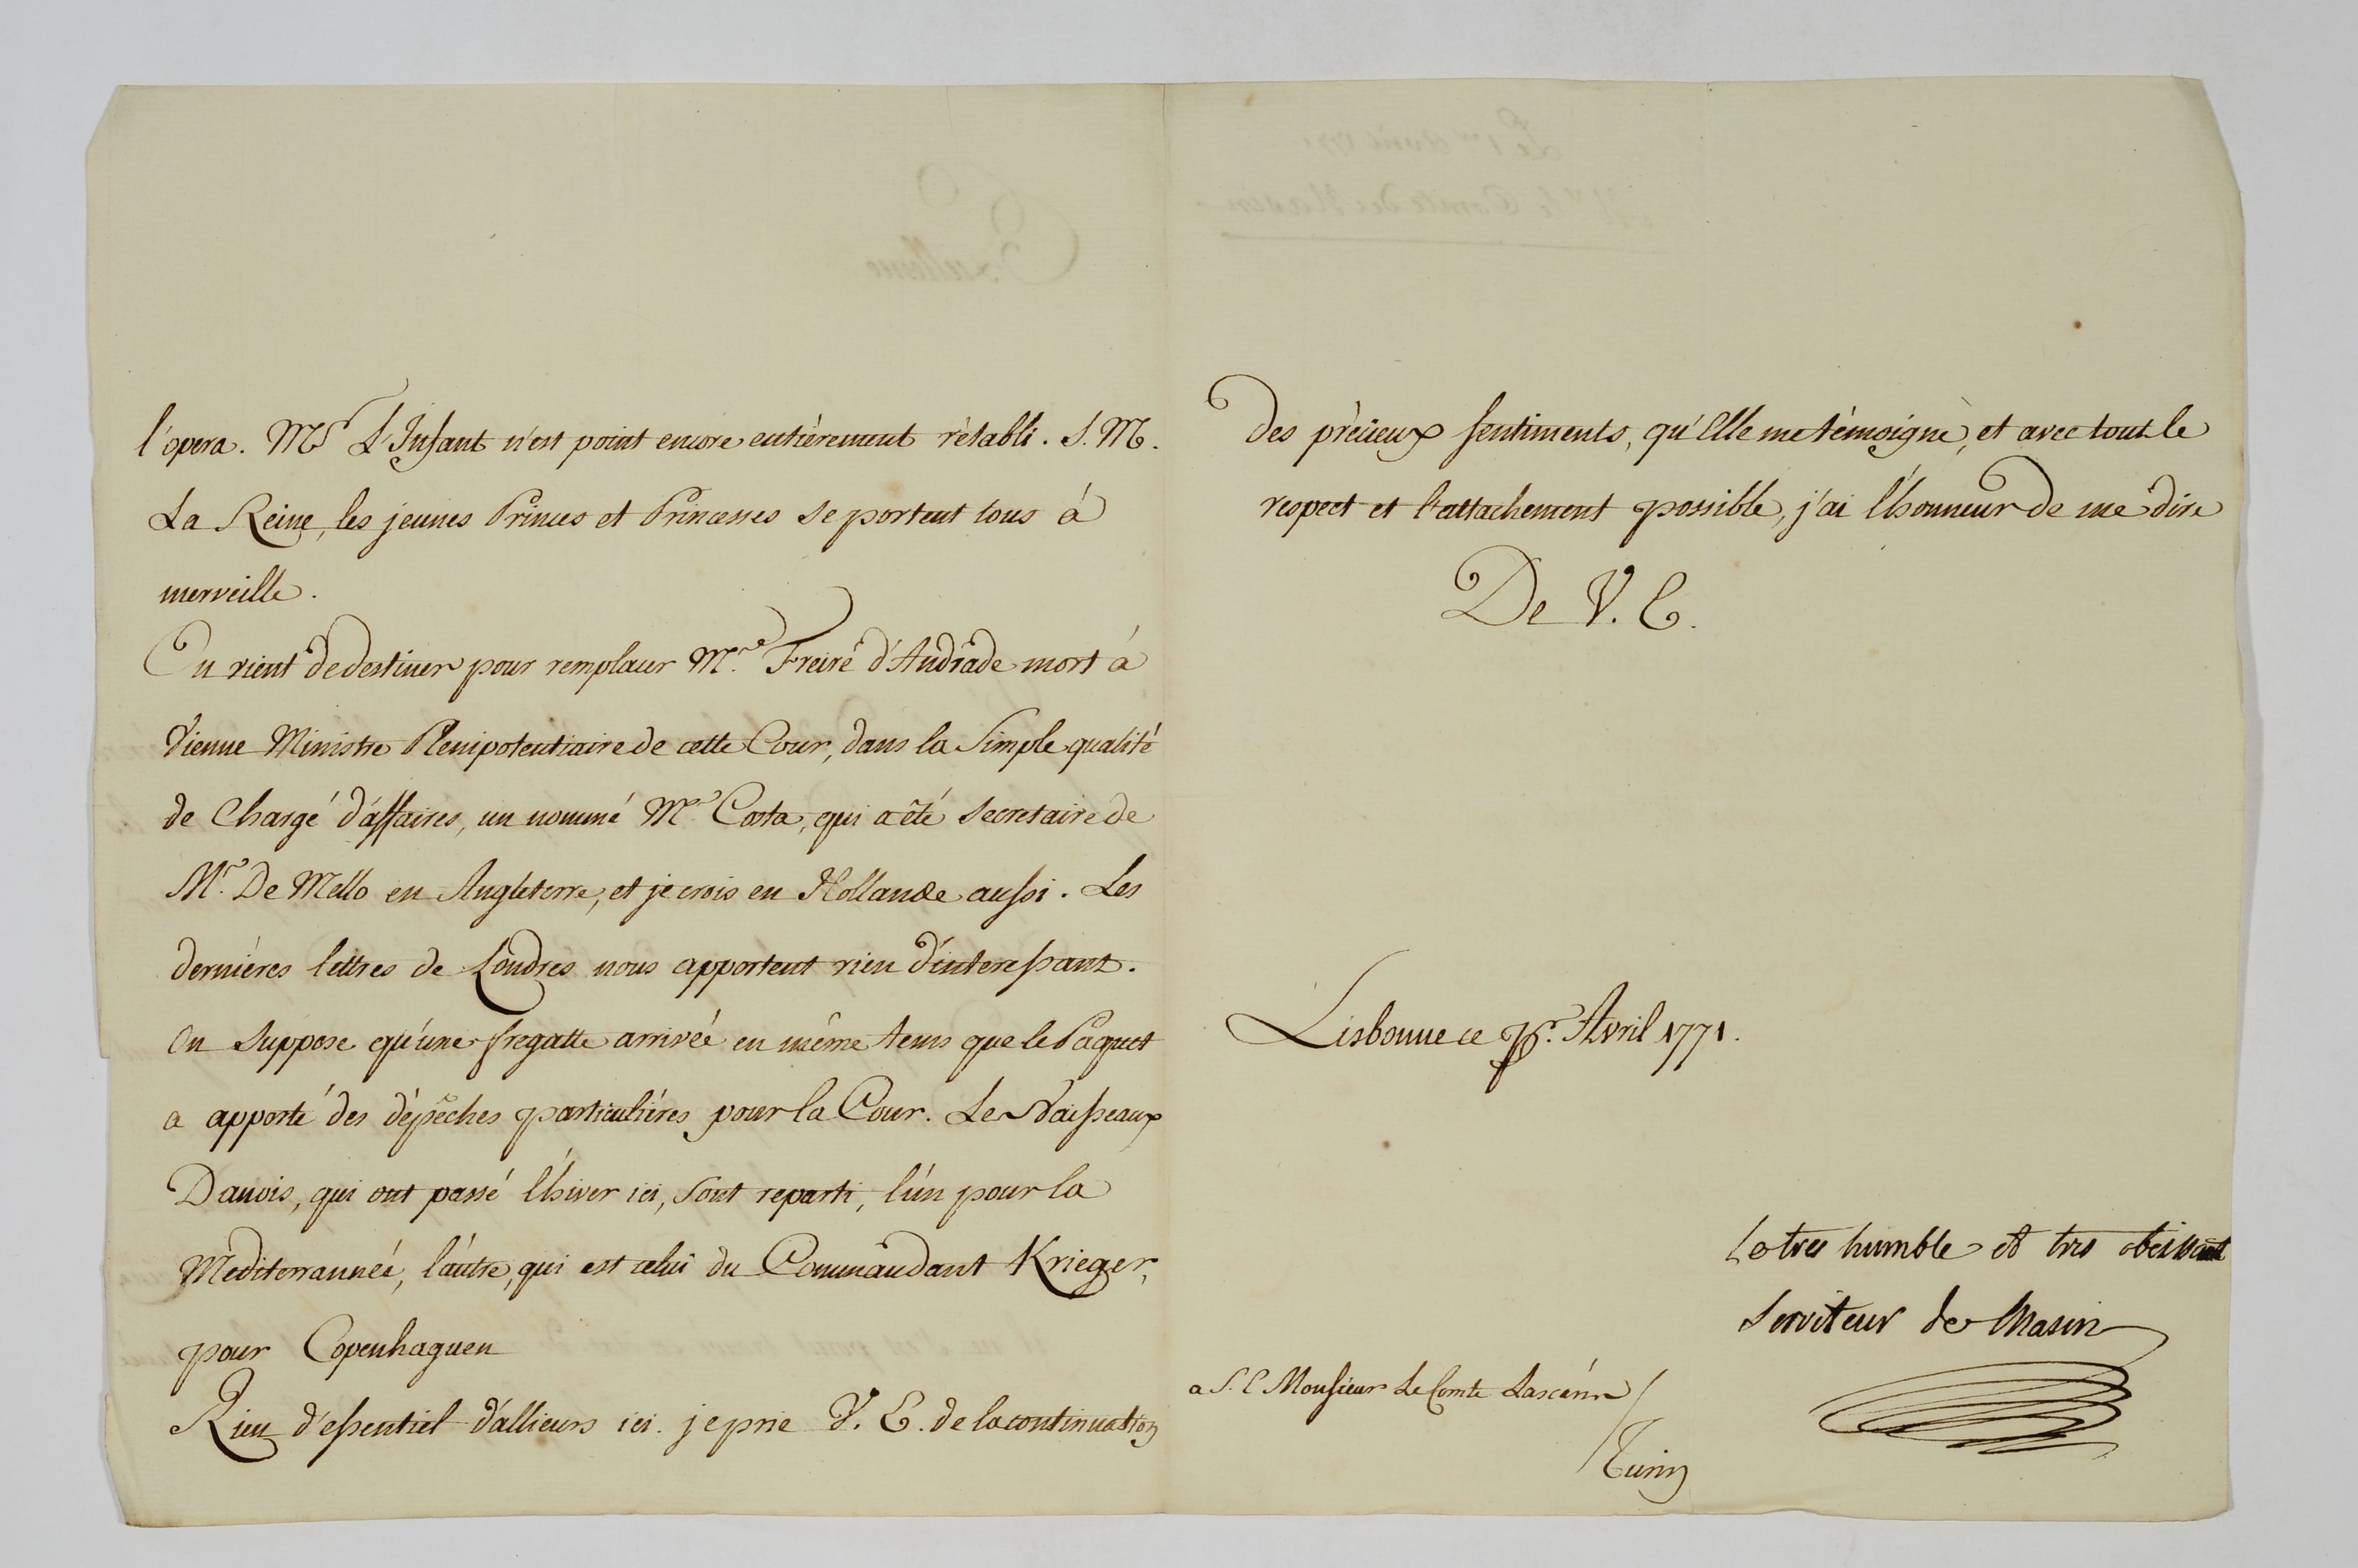 l'opera. Mgr L'Infant n'est point encore entièrement rètabli. S. M.
La Reine, les jeunes Princes et Princesses se portent tous á
merveille.
On vient de destiner pour remplacer Mr. Freire d'Andrade mort á
Vienne Ministre Plenipotentiaire de cette Cour, dans la Simple qualité
de Chargé d'affaires, un nommé Mr. Costa, qui a été Secretaire de
Mr. De Mello en Angleterre, et je crois en Hollande aussi. Les
derniéres lettres de Londres nous apportent rien d'interessant.
On Suppose qu'une fregatte arrivée en même tems que le Paquet
a apporté des dépêches particuliéres pour la Cour. Les Vaisseaux
Danois, qui ont passé l'hiver ici, sont reparti, l'un pour la
Mèditerrannée, l'autre, qui est celui du Commandant Krieger,
pour Copenhaguen
Rien d'essentiel d'allieurs ici. je prie V. E. de la continuation
des prècieux sentiments, qu'Elle me témoigne, et avec tout le
respect et l'attachement possible, j'ai l'honneur de me dire
De V. E.
Lisbonne ce Avril 1771.
Le tres humble et tres obeissant
Serviteur de Masin
a S. E Monsieur Le Comte Lascaris
Turin